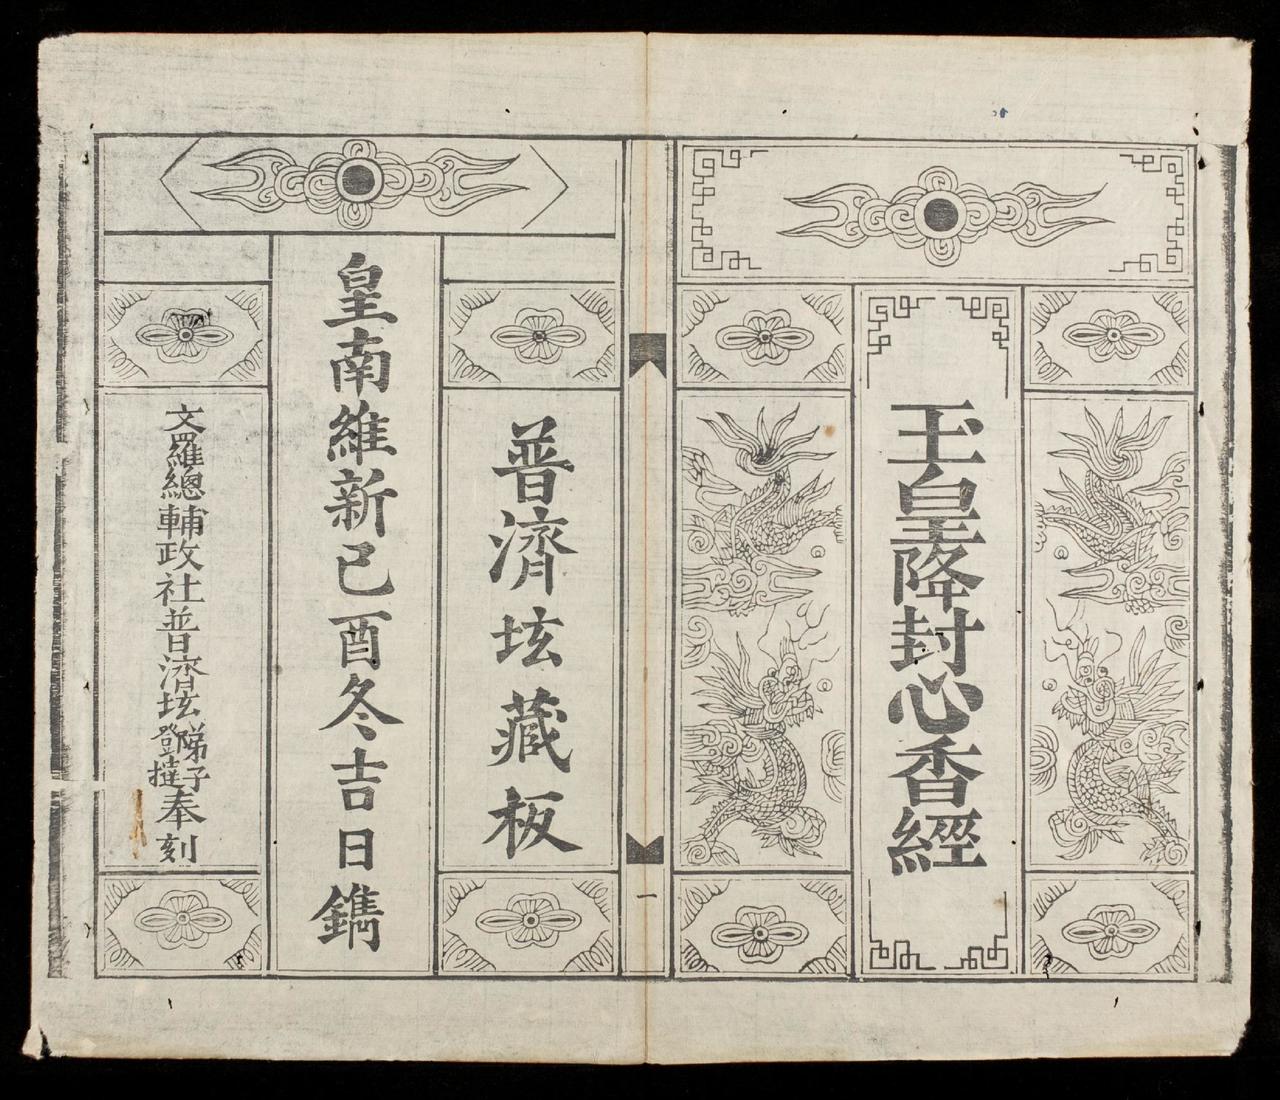 玉皇降封心香經
一
普濟坛藏板
皇南維新己酉冬吉日鐫
文羅總輔政社普濟坛
子登撻奉刻